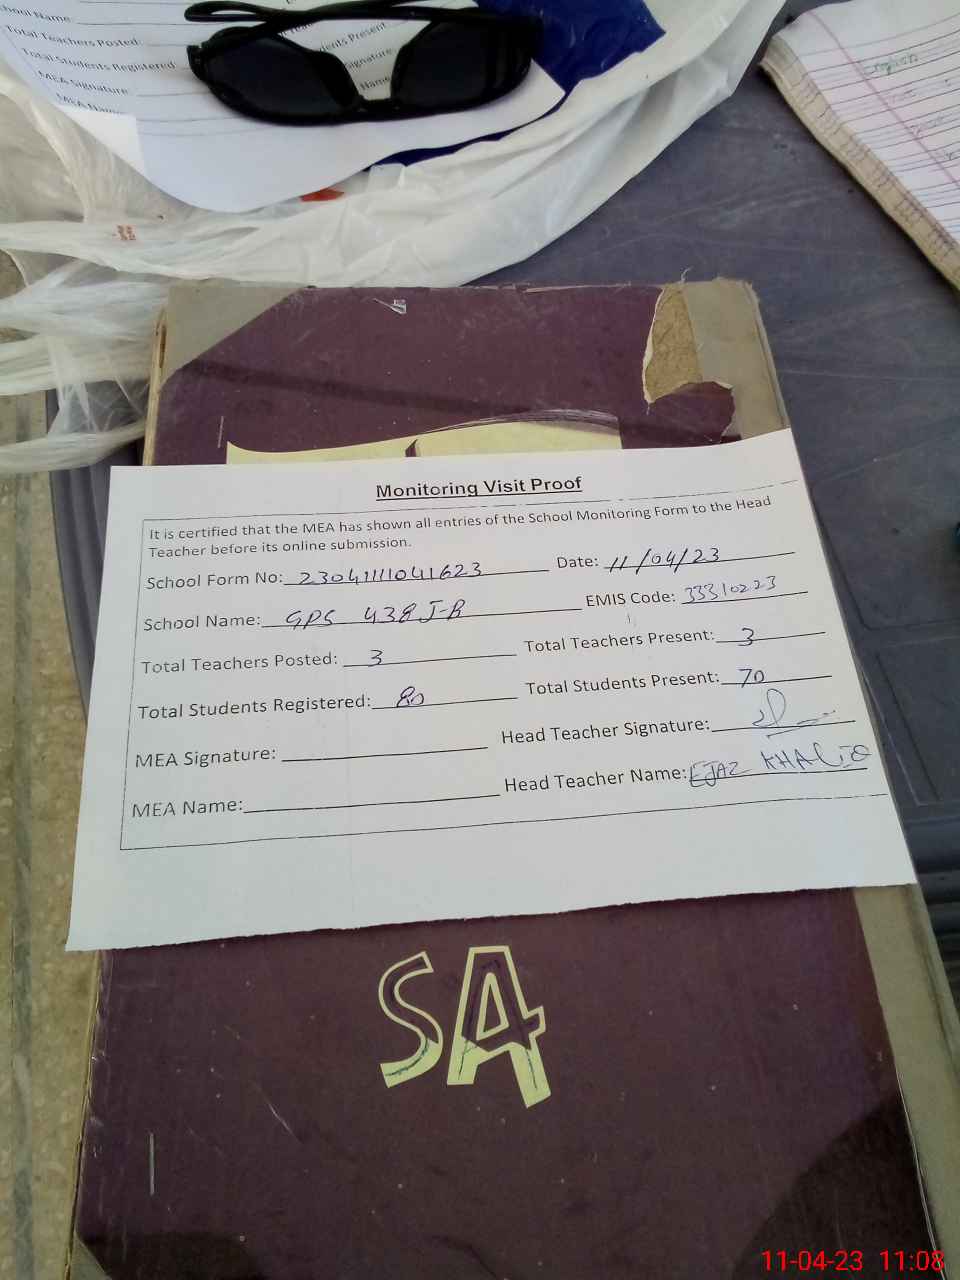 School Name:
Total Teachers Posted:
Total Students Registered:
MEA Signature:
MEA Name:
Students Present:
Signature:
Name:
English
Monitoring Visit Proof
It is certified that the MEA has shown all entries of the School Monitoring Form to the Head
Teacher before its online submission.
School Form No: 23041111041623 Date: 11/04/23
School Name: GPS 438 J-B EMIS Code: 33310223
Total Teachers Posted: 3 Total Teachers Present: 3
Total Students Registered: 80 Total Students Present: 70
MEA Signature: Head Teacher Signature:
MEA Name: Head Teacher Name: EJAZ KHALID
SA
11-04-23 11:08